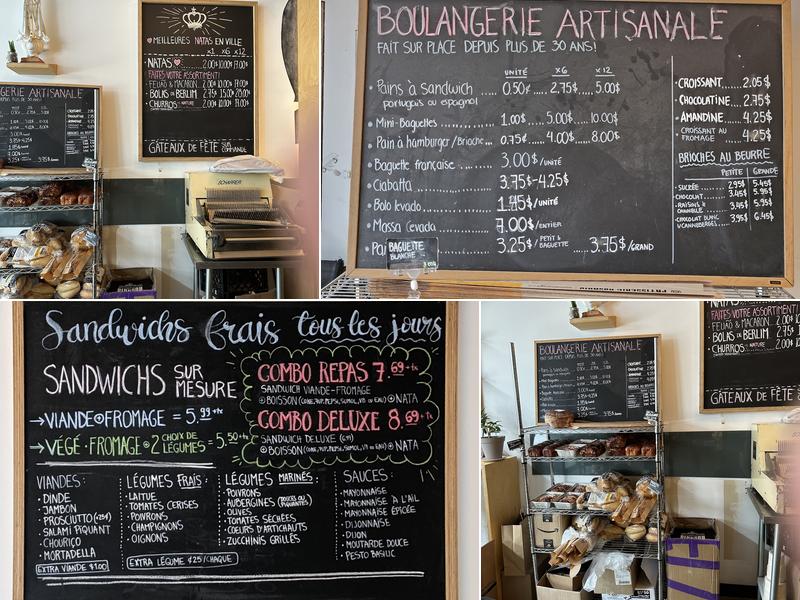 ♥ MEILLEURES NATAS EN VILLE
x1 x6 x12
NATAS ♥ 2.00¢ 10.00¢ 17.00¢
FAITES VOTRE ASSORTIMENT!
FEIJÃO & MACARON. 2.00¢ 10.00¢ 17.00¢
BOLAS DE BERLIM. 2.75¢ 15.00¢ 25.00¢
CHURROS. NATURE 2.00¢ 10.00¢ 17.00¢
GÂTEAUX DE FÊTE SUR COMMANDE
BOULANGERIE ARTISANALE
FAIT SUR PLACE DEPUIS PLUS DE 30 ANS!
UNITÉ x6 x12
• Pains à sandwich ..... 0.50¢ .... 2.75$ .... 5.00$
portugais ou espagnol
• Mini-Baguettes 1.00$ .... 5.00$ .... 10.00$
• Pain à hamburger/Brioche... 0.75¢ .... 4.00$ .... 8.00$
• Baguette française ..... 3.00$/UNITÉ
• Ciabatta 3.75$-4.25$
• Bolo levado 1.45$/UNITÉ
• Massa Cevada 7.00$/ENTIER
• Pa 3.25$/PETIT & BAGUETTE ..... 3.75$/GRAND
BAGUETTE
BLANCHE
• CROISSANT....2.05$
• CHOCOLATINE...2.75$
• AMANDINE....4.25$
• CROISSANT AU
FROMAGE 4.25$
BRIOCHES AU BEURRE
PETITE GRANDE
• SUCRÉE 2.95$ 5.45$
• CHOCOLAT 3.45$ 5.95$
• RAISINS &
CANNELLE 3.45$ 5.95$
• CHOCOLAT BLANC
& CANNEBERGES 3.95$ 6.45$
Sandwichs frais tous les jours
SANDWICHS SUR MESURE
→ VIANDE + FROMAGE = 5.99 +tx
→ VÉGÉ • FROMAGE + 2 CHOIX DE LÉGUMES = 5.50 +tx
COMBO REPAS 7.69 +tx
SANDWICH VIANDE-FROMAGE
+ BOISSON (COKE, PEPSI, SUMOL, JUS OU EAU) + NATA
COMBO DELUXE 8.69 +tx
SANDWICH DELUXE
+ BOISSON (COKE, PEPSI, SUMOL, JUS OU EAU) + NATA
VIANDES:
• DINDE
• JAMBON
• PROSCIUTTO
• SALAMI PIQUANT
• CHOURIÇO
• MORTADELLA
EXTRA VIANDE $1.00
LÉGUMES FRAIS:
• LAITUE
• TOMATES CERISES
• POIVRONS
• CHAMPIGNONS
• OIGNONS
EXTRA LÉGUME ¢25/CHAQUE
LÉGUMES MARINÉS:
• POIVRONS
• AUBERGINES (DOUCES OU PIQUANTES)
• OLIVES
• TOMATES SÉCHÉES
• COEURS D'ARTICHAUTS
• ZUCCHINIS GRILLÉS
SAUCES:
• MAYONNAISE
• MAYONNAISE À L'AIL
• MAYONNAISE ÉPICÉE
• DIJONNAISE
• DIJON
• MOUTARDE DOUCE
• PESTO BASILIC
BOULANGERIE ARTISANALE
FAITES VOTRE ASSORTIMENT!
FEIJÃO & MACARON.
BOLAS DE BERLIM.
CHURROS. NATURE
GÂTEAUX DE FÊTE